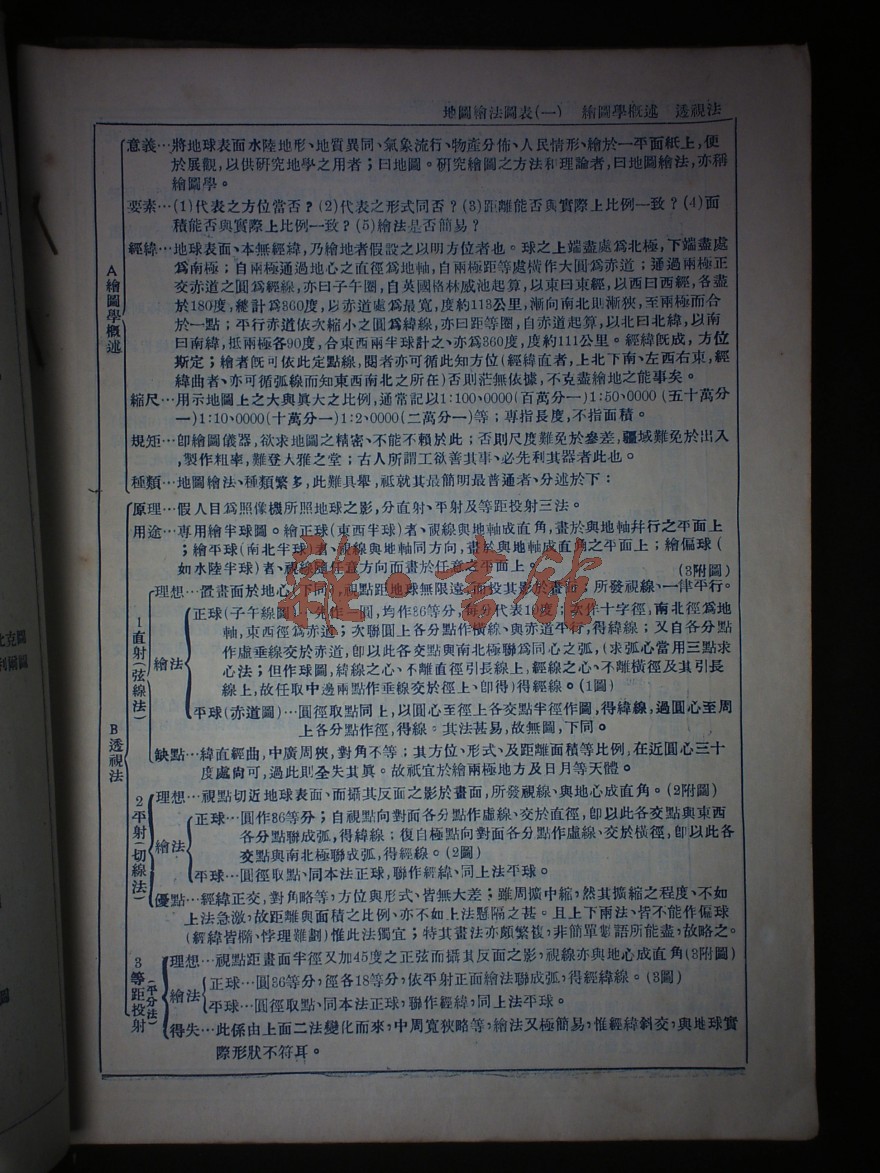 地圖繪法圖表(一)　繪圖學概述　透視法
A繪圖學概述
意義…將地球表面水陸地形、地質異同、氣象流行、物產分佈、人民情形、繪於一平面紙上，便
於展觀，以供研究地學之用者；曰地圖。研究繪圖之方法和理論者，曰地圖繪法，亦稱
繪圖學。
要素…(1)代表之方位當否？(2)代表之形式同否？(3)距離能否與實際上比例一致？(4)面
積能否與實際上比例一致？(5)繪法是否簡易？
經緯…地球表面、本無經緯，乃繪地者假設之以明方位者也。球之上端盡處爲北極，下端盡處
爲南極；自兩極通過地心之直徑爲地軸，自兩極距等處橫作大圓爲赤道；通過兩極正
交赤道之圓爲經線，亦曰子午圈，自英國格林威池起算，以東曰東經，以西曰西經，各盡
於180度，總計爲360度，以赤道處爲最寬，度約113公里，漸向南北則漸狹，至兩極而合
於一點；平行赤道依次縮小之圓爲緯線，亦曰距等圈，自赤道起算，以北曰北緯，以南
曰南緯，抵兩極各90度，合東西兩半球計之、亦爲360度，度約111公里。經緯旣成，方位
斯定；繪者旣可依此定點線，閱者亦可循此知方位(經緯直者，上北下南、左西右東，經
緯曲者、亦可循弧線而知東西南北之所在)否則茫無依據，不克盡繪地之能事矣。
縮尺…用示地圖上之大與眞大之比例，通常記以1:100、0000(百萬分一)1:50、0000 (五十萬分
一)1:10、0000(十萬分一)1:2、0000(二萬分一)等；專指長度，不指面積。
規矩…卽繪圖儀器，欲求地圖之精密、不能不賴於此；否則尺度難免於參差，疆域難免於出入
，製作粗率，難登大雅之堂；古人所謂工欲善其事、必先利其器者此也。
種類…地圖繪法、種類繁多，此難具舉，祗就其最簡明最普通者、分述於下：
B透視法
原理…假人目爲照像機所照地球之影，分直射、平射及等距投射三法。
用途…專用繪半球圖。繪正球(東西半球)者、視線與地軸成直角，畫於與地軸幷行之平面上
；繪平球(南北半球)者、視線與地軸同方向，畫於與地軸成直角之平面上；繪偏球(
如水陸半球)者、視線隨任意方向而畫於任意之平面上。
(3附圖)
1直射(弦線法)
理想…置畫面於地心(下同)，視點距地球無限遠，而投其影於畫面；所發視線、一律平行。
繪法
正球(子午線圖)、先作一圓，均作36等分，每分代表10度；次作十字徑，南北徑爲地
軸，東西徑爲赤道；次聯圓上各分點作橫線、與赤道平行，得緯線；又自各分點
作虛垂線交於赤道，卽以此各交點與南北極聯爲同心之弧，(求弧心當用三點求
心法；但作球圖，緯線之心、不離直徑引長線上，經線之心、不離橫徑及其引長
線上，故任取中邊兩點作垂線交於徑上、卽得)得經線。(1圖)
平球(赤道圖)…圓徑取點同上，以圓心至徑上各交點半徑作圓，得緯線，過圓心至周
上各分點作徑，得線。其法甚易，故無圖，下同。
缺點…緯直經曲，中廣周狹，對角不等；其方位、形式、及距離面積等比例，在近圓心三十
度處尙可，過此則全失其眞。故祇宜於繪兩極地方及日月等天體。
2平射(切線法)
理想…視點切近地球表面、而攝其反面之影於畫面，所發視線、與地心成直角。(2附圖)
繪法
正球…圓作36等分；自視點向對面各分點作虛線、交於直徑，卽以此各交點與東西
各分點聯成弧，得緯線；復自極點向對面各分點作虛線、交於橫徑，卽以此各
交點與南北極聯成弧，得經線。(2圖)
平球…圓徑取點、同本法正球，聯作經緯、同上法平球。
優點…經緯正交，對角略等，方位與形式、皆無大差；雖周擴中縮，然其擴縮之程度、不如
上法急激，故距離與面積之比例、亦不如上法懸隔之甚。且上下兩法、皆不能作偏球
(經緯皆橢、悖理難劃)惟此法獨宜；特其畫法亦頗繁複，非簡單數語所能盡，故略之。
3等距投射(平分法)
理想…視點距畫面半徑又加45度之正弦而攝其反面之影，視線亦與地心成直角(3附圖)
繪法
正球…圓36等分，徑各18等分，依平射正面繪法聯成弧，得經緯線。(3圖)
平球…圓徑取點、同本法正球，聯作經緯，同上法平球。
得失…此係由上面二法變化而來，中周寬狹略等，繪法又極簡易，惟經緯斜交，與地球實
際形狀不符耳。